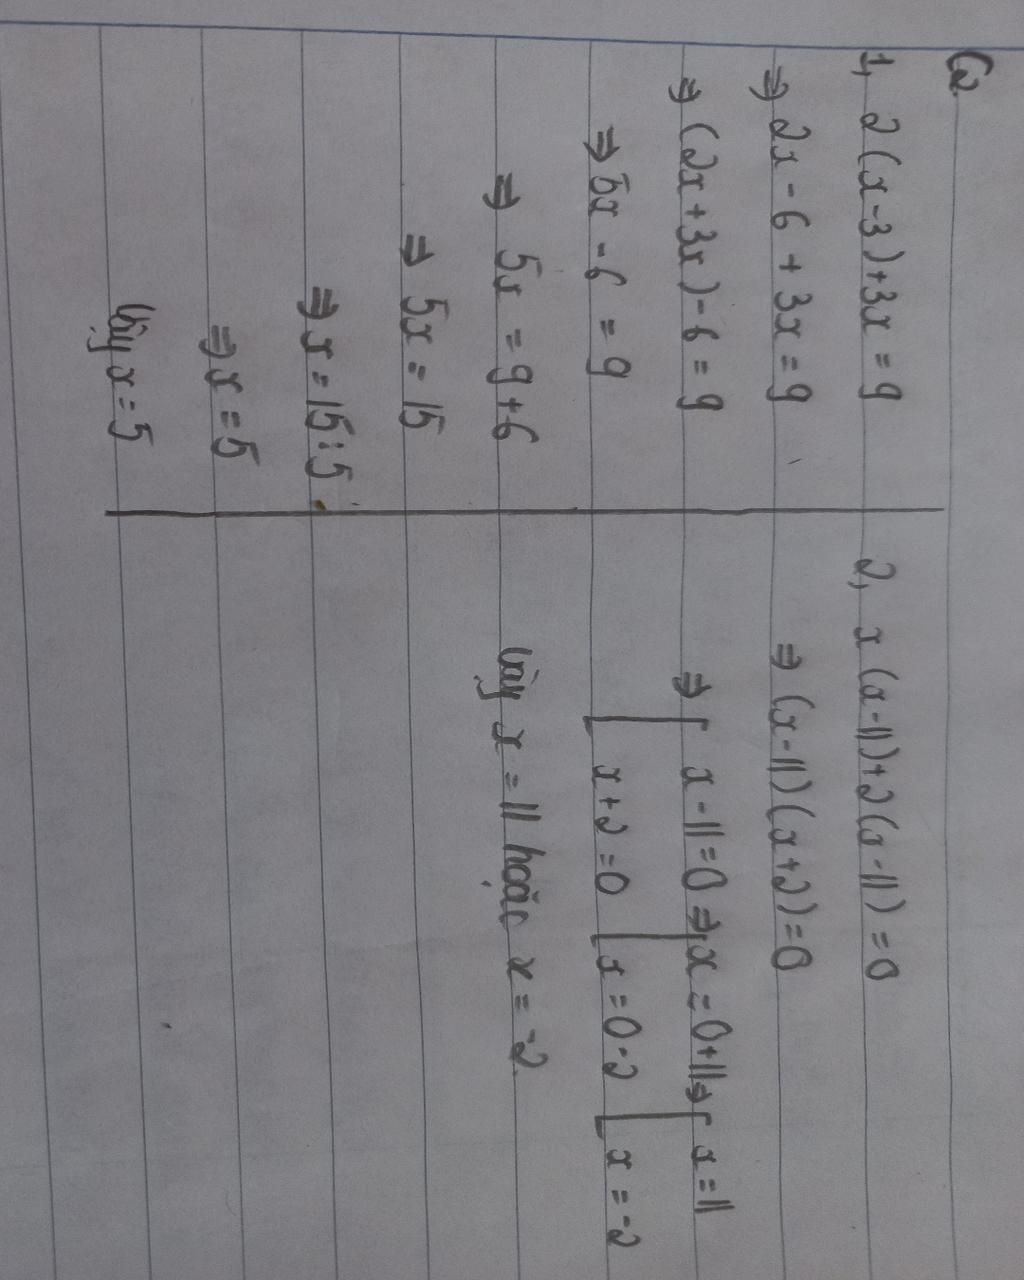 C2.
1, 2(x-3)+3x = 9
⇒ 2x - 6 + 3x = 9
⇒ (2x+3x) - 6 = 9
⇒ 5x - 6 = 9
⇒ 5x = 9+6
⇒ 5x = 15
⇒ x = 15:5
⇒ x = 5
Vậy x = 5
2, x(x-11)+2(x-11) = 0
⇒ (x-11)(x+2) = 0
⇒ [ x - 11 = 0 ⇒ [ x = 0+11 ⇒ [ x = 11
[ x + 2 = 0 [ x = 0-2 [ x = -2
Vậy x = 11 hoặc x = -2